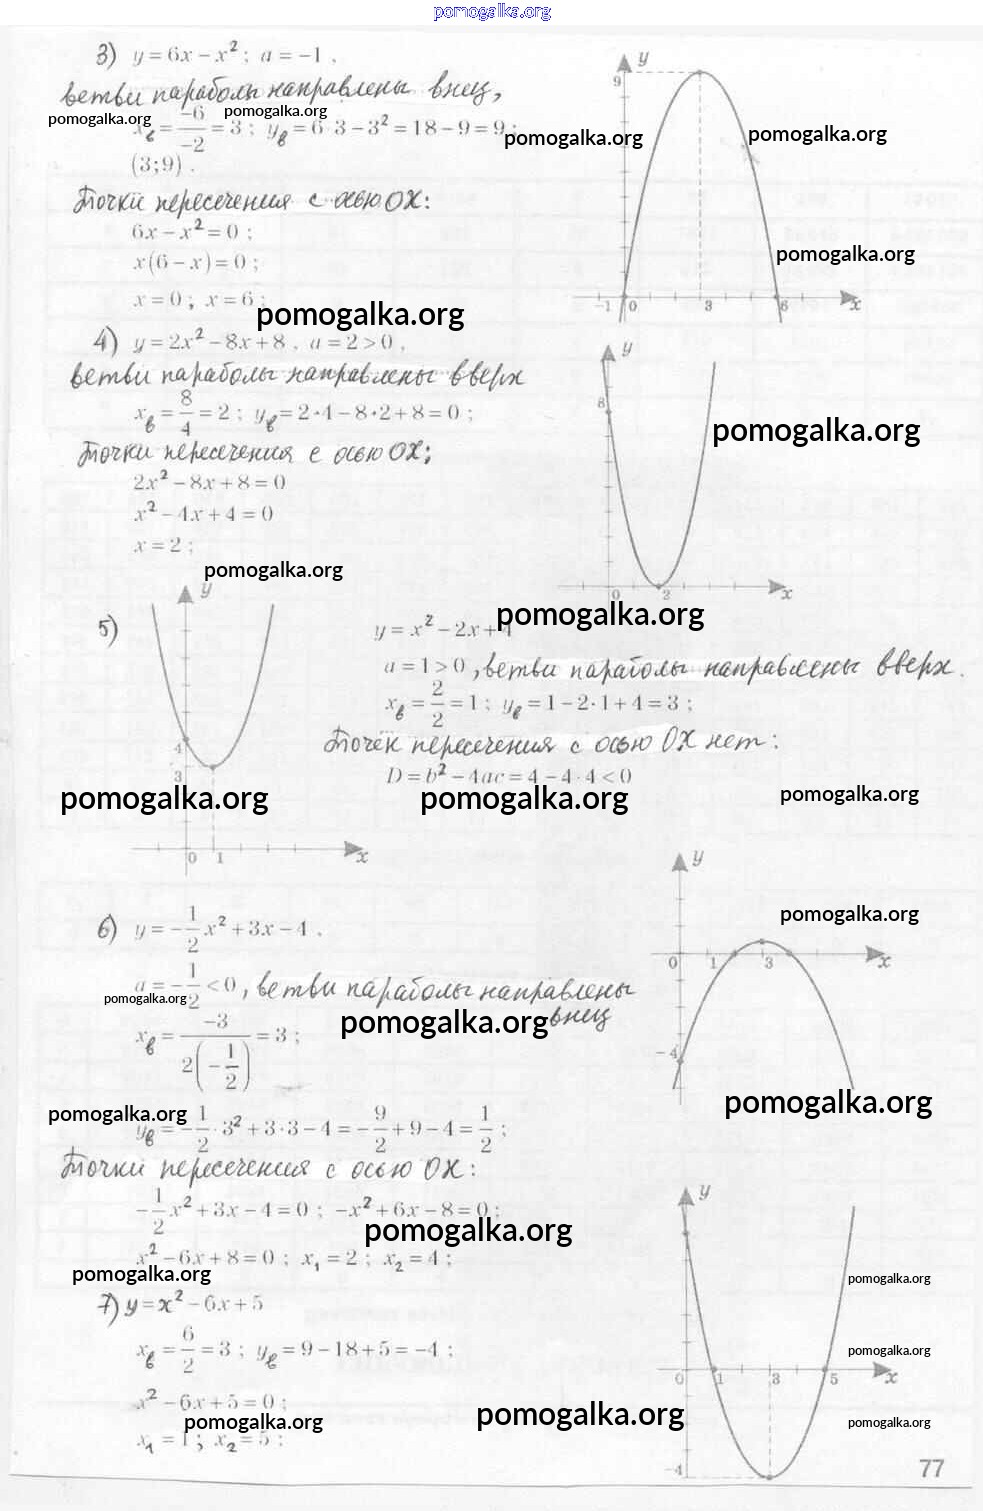 pomogalka.org
3) y = 6x − x²; a = −1 ,
ветви параболы направлены вниз,
pomogalka.org pomogalka.org
x_в = −6/−2 = 3; y_в = 6·3 − 3² = 18 − 9 = 9;
pomogalka.org pomogalka.org
(3;9) .
Точки пересечения с осью OX:
6x − x² = 0 ;
x(6 − x) = 0 ;
x = 0 ; x = 6 ;
pomogalka.org
y 9 −1 0 3 6 x
pomogalka.org
4) y = 2x² − 8x + 8 , a = 2 > 0 ,
ветви параболы направлены вверх
x_в = 8/4 = 2 ; y_в = 2·4 − 8·2 + 8 = 0 ;
Точки пересечения с осью OX;
2x² − 8x + 8 = 0
x² − 4x + 4 = 0
x = 2 ;
pomogalka.org
y 8 0 2 x
pomogalka.org
pomogalka.org
5) y = x² − 2x + 4
a = 1 > 0 , ветви параболы направлены вверх.
x_в = 2/2 = 1 ; y_в = 1 − 2·1 + 4 = 3 ;
Точек пересечения с осью OX нет:
D = b² − 4ac = 4 − 4·4 < 0
pomogalka.org pomogalka.org pomogalka.org
y 4 3 0 1 x
6) y = −1/2 x² + 3x − 4 ,
pomogalka.org
a = −1/2 < 0 , ветви параболы направлены
вниз
pomogalka.org pomogalka.org
x_в = −3/2(−1/2) = 3 ;
y 0 1 3 x −4
pomogalka.org
pomogalka.org
y_в = −1/2 · 3² + 3·3 − 4 = −9/2 + 9 − 4 = 1/2 ;
Точки пересечения с осью OX:
−1/2 x² + 3x − 4 = 0 ; −x² + 6x − 8 = 0 ;
pomogalka.org
x² − 6x + 8 = 0 ; x₁ = 2 ; x₂ = 4 ;
pomogalka.org
7) y = x² − 6x + 5
x_в = 6/2 = 3 ; y_в = 9 − 18 + 5 = −4 ;
x² − 6x + 5 = 0 ;
pomogalka.org pomogalka.org
x₁ = 1 ; x₂ = 5 ;
y 0 1 3 5 x −4
pomogalka.org
pomogalka.org
pomogalka.org
77